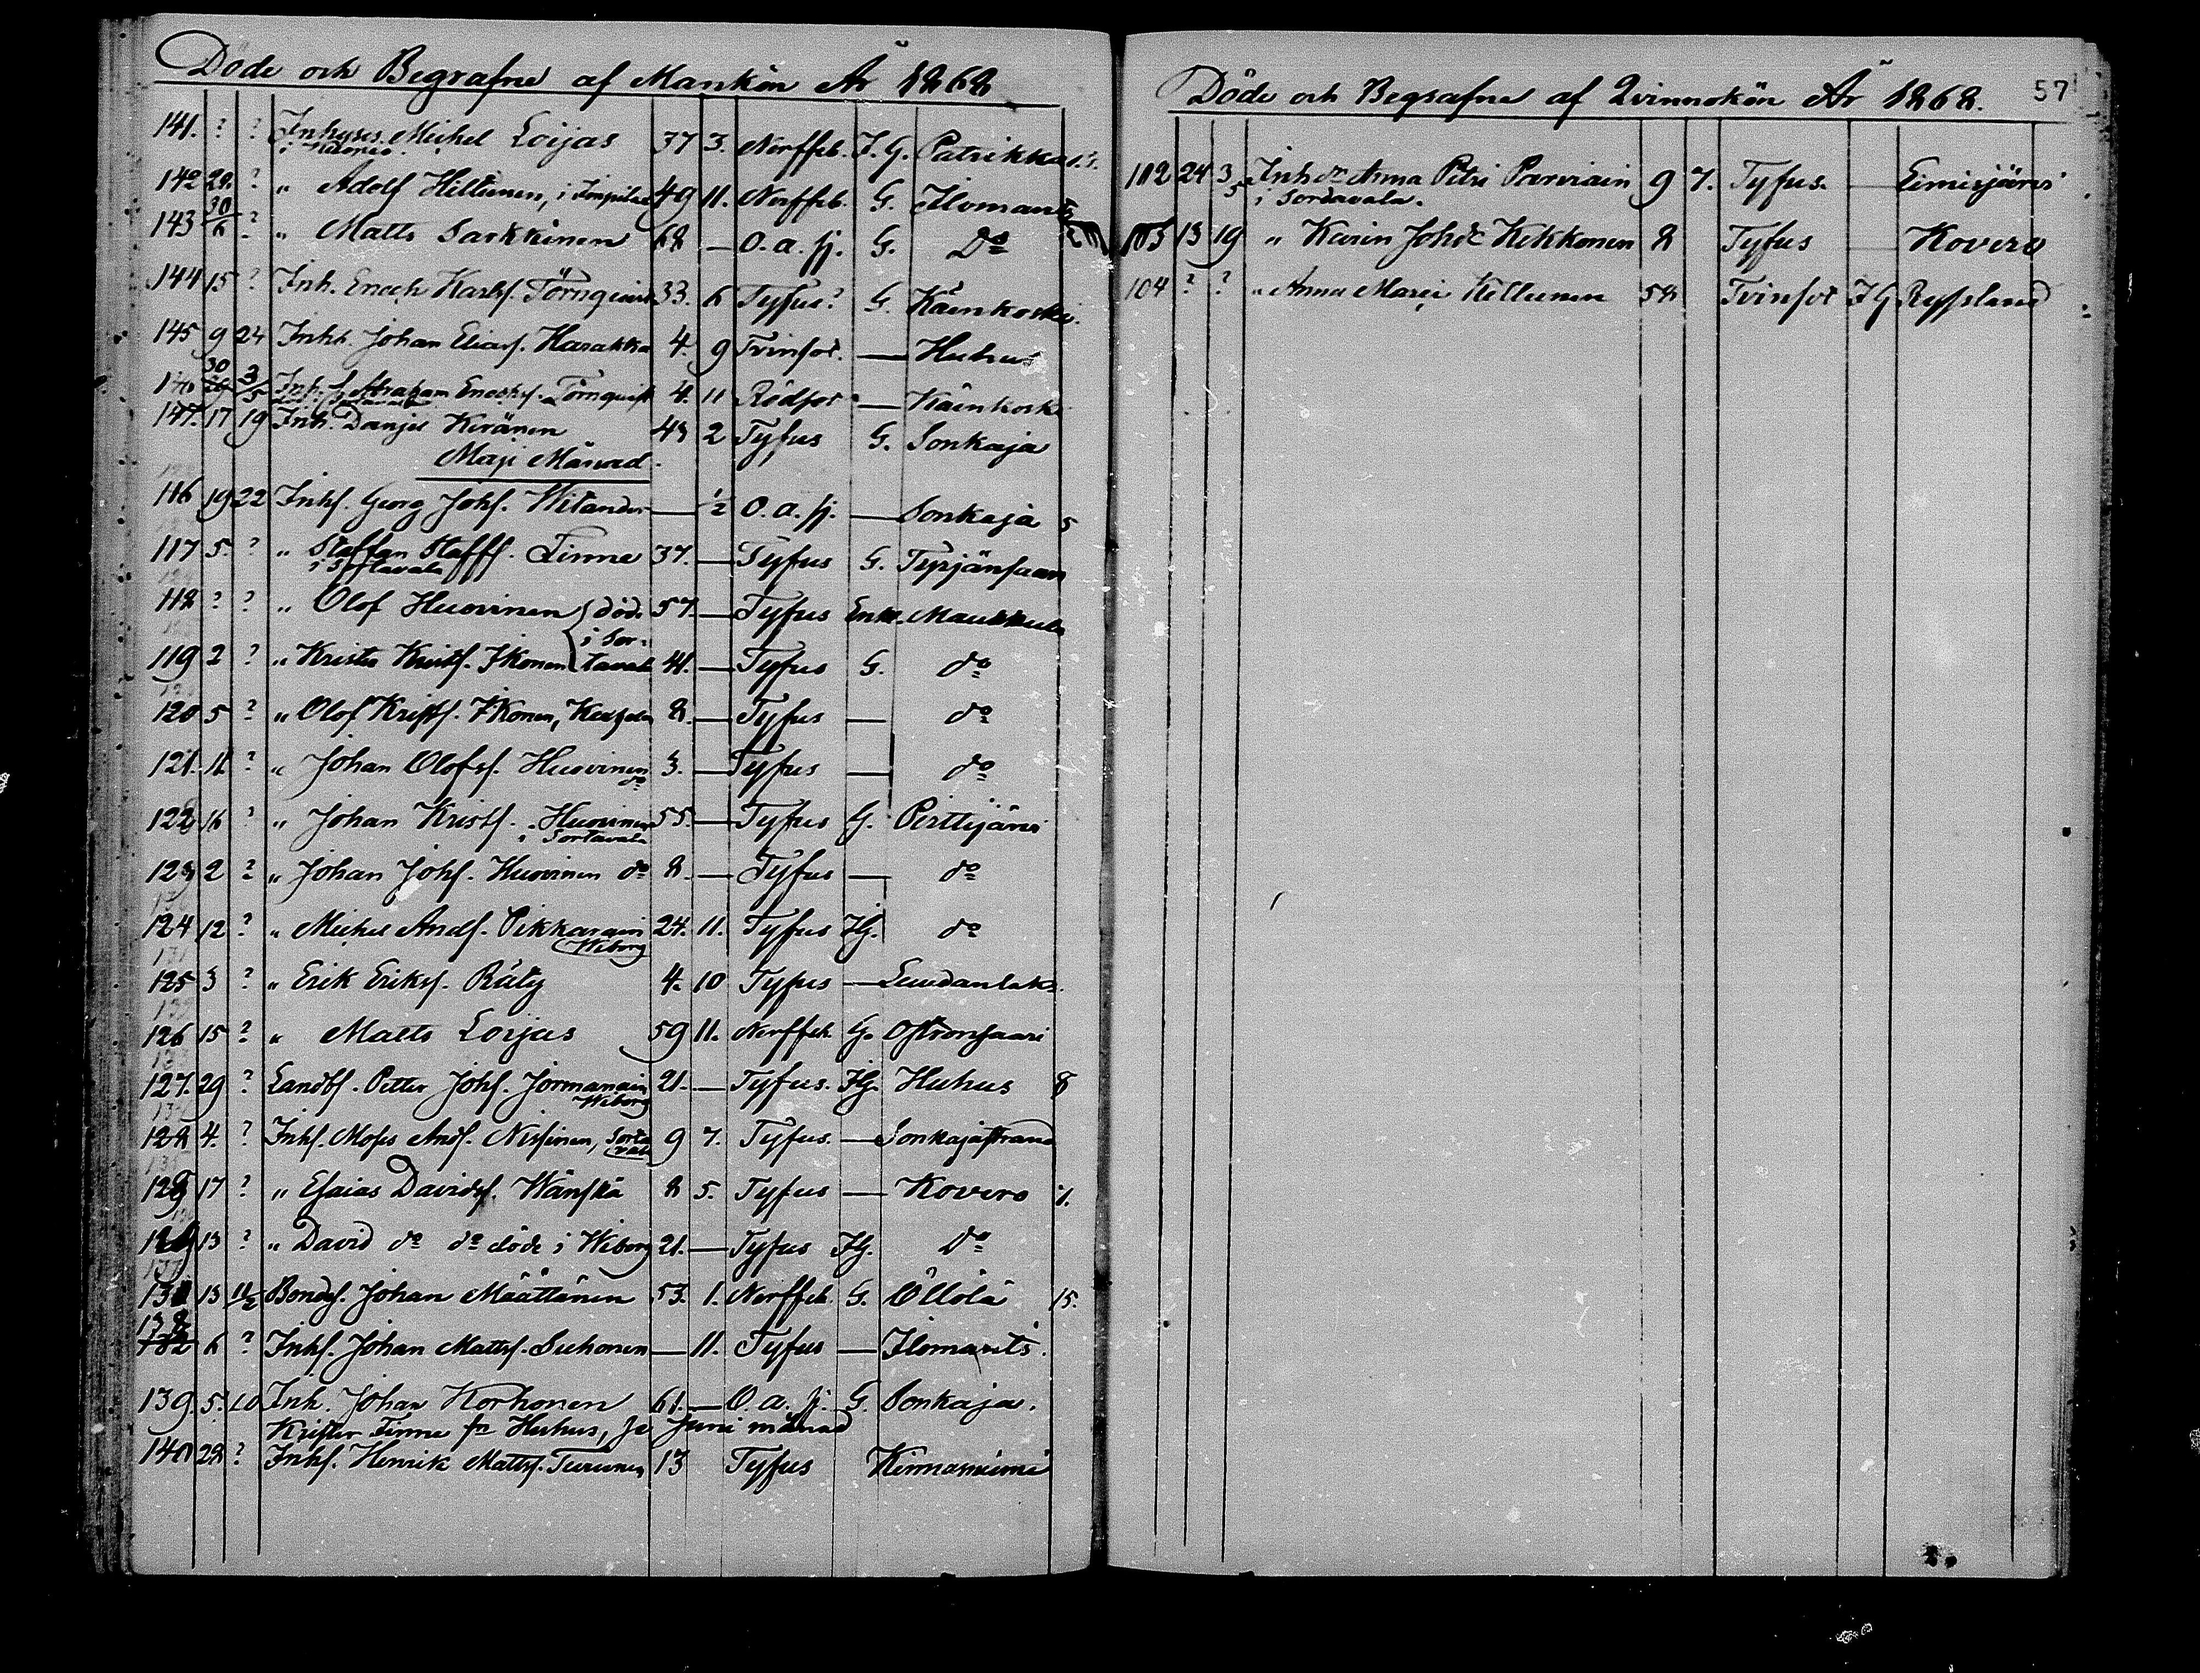 Döde och Begrafne af Mankön År 1868
141. ? ? Inhyses Michel Loijas 37 3. Nerffeb. I. G. Patrikka
142 28 ? " Adolf Hiltunen, i Impilax 49 11. Nerffeb. G. Ilomants
143 30/6 ? " Matts Sarkkinen 68 — O. a. sj. G. Do
144 15 ? Inh. Enoch Karlss. Törnqvist 33. 6 Tyfus? G. Käenkoski
145 9 24 Inhs. Johan Eliass. Harakka 4. 9 Tvinsot. — Huhus
146 30 3/5 Inhs. Abraham Enochs. Törnqvist 4. 11 Rödsot — Käenkoski
147. 17 19 Inh. Danjel Kiränen 43 2 Tyfus G. Sonkaja
Maji Månad.
116 19 22 Inhs. Georg Johs. Witander — ½ O. a. sj. — Sonkaja 5
117 5. ? " Staffan Staffs. Timne 37. — Tyfus G. Tyrjänsaari
i Sortavala
118 ? ? " Olof Huovinen död 57 — Tyfus Enkl. Maukkula
i Sor-
119 2 ? " Krister Krists. Ikonen tavala 41. — Tyfus G. do
120 5 ? " Olof Krists. Ikonen, 8. — Tyfus — do
121. 11 ? " Johan Olofs. Huovinen do 3. — Tyfus — do
122 16 ? " Johan Krists. Huovinen 55. — Tyfus G. Perttijärvi
i Sortavala
123 2 ? " Johan Johs. Huovinen do 8. — Tyfus — do
124 12 ? " Michel Ands. Pikkarain 24. 11. Tyfus Ig. do
Wiborg
125 3 ? " Erik Eriks. Räty 4. 10 Tyfus — Leudanlaks.
126 15 ? " Matts Loijas 59 11. Nerffeb. G. Ostronsaari
127. 29 ? Landbs. Petter Johs. Jormanain 21. — Tyfus. Ig. Huhus 8
Wiborg
128 4. ? Inhs. Moses Ands. Nissinen, Sorta 9 7. Tyfus. — Sonkajastrand
vala
129 17 ? " Esaias Davids. Wänskä 8 5. Tyfus — Kovero 7.
13 ? " David do do död i Wiborg 21. — Tyfus Ig. Do
131 13 Bonds. Johan Määttänen 53. 1. Nerffeb. G. Öllölä 15.
138
132 6 ? Inhs. Johan Matts. Suhonen — 11. Tyfus — Ilomants.
139. 5. 10 Inh. Johan Korhonen 61. — O. a. sj. G. Sonkaja.
Krister Timne fr Huhus, se Juni månad
140 28 ? Inhs. Henrik Matts. Turunen 13 Tyfus Kinnasniemi
Döde och Begrafne af Qvinnokön År 1868. 57
102 24 3/5 Inhdr Anna Petri Parviain 9 7. Tyfus. — Liminjärvi
i Sordavala.
103 13 19 " Karin Johdr Kekkonen 8 Tyfus — Kovero
104 ? ? " Anna Maria Kettunen 58 Tvinsot I G Ryssland